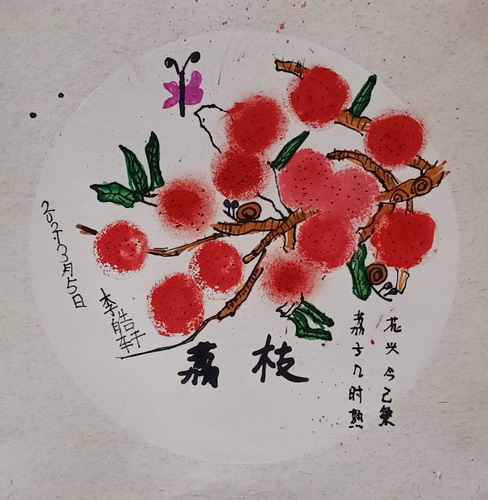 花头今已繁
荔子几时熟
荔枝
李皓轩
3月5日